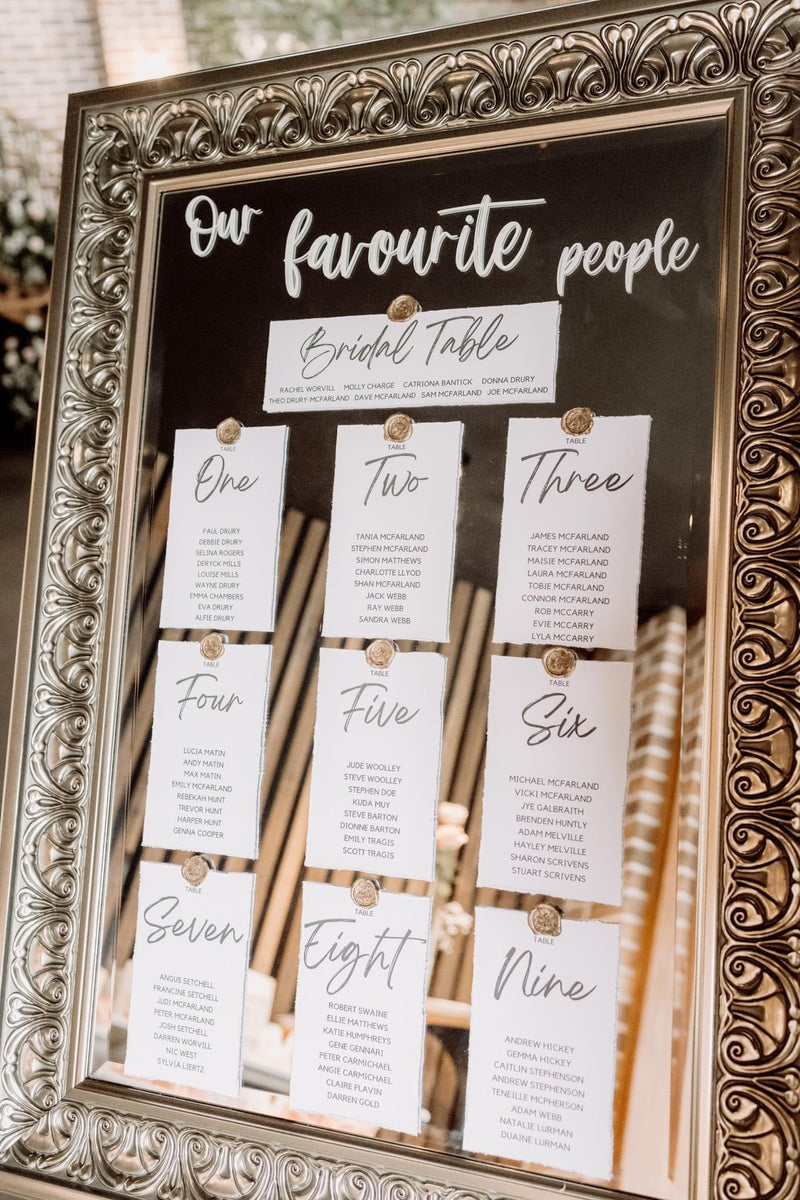 Our favourite people
Bridal Table
RACHEL WORVILL MOLLY CHARGE CATRIONA BANTICK DONNA DRURY
THEO DRURY-MCFARLAND DAVE MCFARLAND SAM MCFARLAND JOE MCFARLAND
TABLE
One
PAUL DRURY
DEBBIE DRURY
SELINA ROGERS
DERYCK MILLS
LOUISE MILLS
WAYNE DRURY
EMMA CHAMBERS
EVA DRURY
ALFIE DRURY
TABLE
Two
TANIA MCFARLAND
STEPHEN MCFARLAND
SIMON MATTHEWS
CHARLOTTE LLYOD
SHAN MCFARLAND
JACK WEBB
RAY WEBB
SANDRA WEBB
TABLE
Three
JAMES MCFARLAND
TRACEY MCFARLAND
MAISIE MCFARLAND
LAURA MCFARLAND
TOBIE MCFARLAND
CONNOR MCFARLAND
ROB MCCARRY
EVIE MCCARRY
LYLA MCCARRY
TABLE
Four
LUCIA MATIN
ANDY MATIN
MAX MATIN
EMILY MCFARLAND
REBEKAH HUNT
TREVOR HUNT
HARPER HUNT
GENNA COOPER
TABLE
Five
JUDE WOOLLEY
STEVE WOOLLEY
STEPHEN DOE
KUDA MUY
STEVE BARTON
DIONNE BARTON
EMILY TRAGIS
SCOTT TRAGIS
TABLE
Six
MICHAEL MCFARLAND
VICKI MCFARLAND
JYE GALBRAITH
BRENDEN HUNTLY
ADAM MELVILLE
HAYLEY MELVILLE
SHARON SCRIVENS
STUART SCRIVENS
TABLE
Seven
ANGUS SETCHELL
FRANCINE SETCHELL
JUDI MCFARLAND
PETER MCFARLAND
JOSH SETCHELL
DARREN WORVILL
NIC WEST
SYLVIA LIERTZ
TABLE
Eight
ROBERT SWAINE
ELLIE MATTHEWS
KATIE HUMPHREYS
GENE GENNARI
PETER CARMICHAEL
ANGIE CARMICHAEL
CLAIRE FLAVIN
DARREN GOLD
TABLE
Nine
ANDREW HICKEY
GEMMA HICKEY
CAITLIN STEPHENSON
ANDREW STEPHENSON
TENEILLE MCPHERSON
ADAM WEBB
NATALIE LURMAN
DUAINE LURMAN